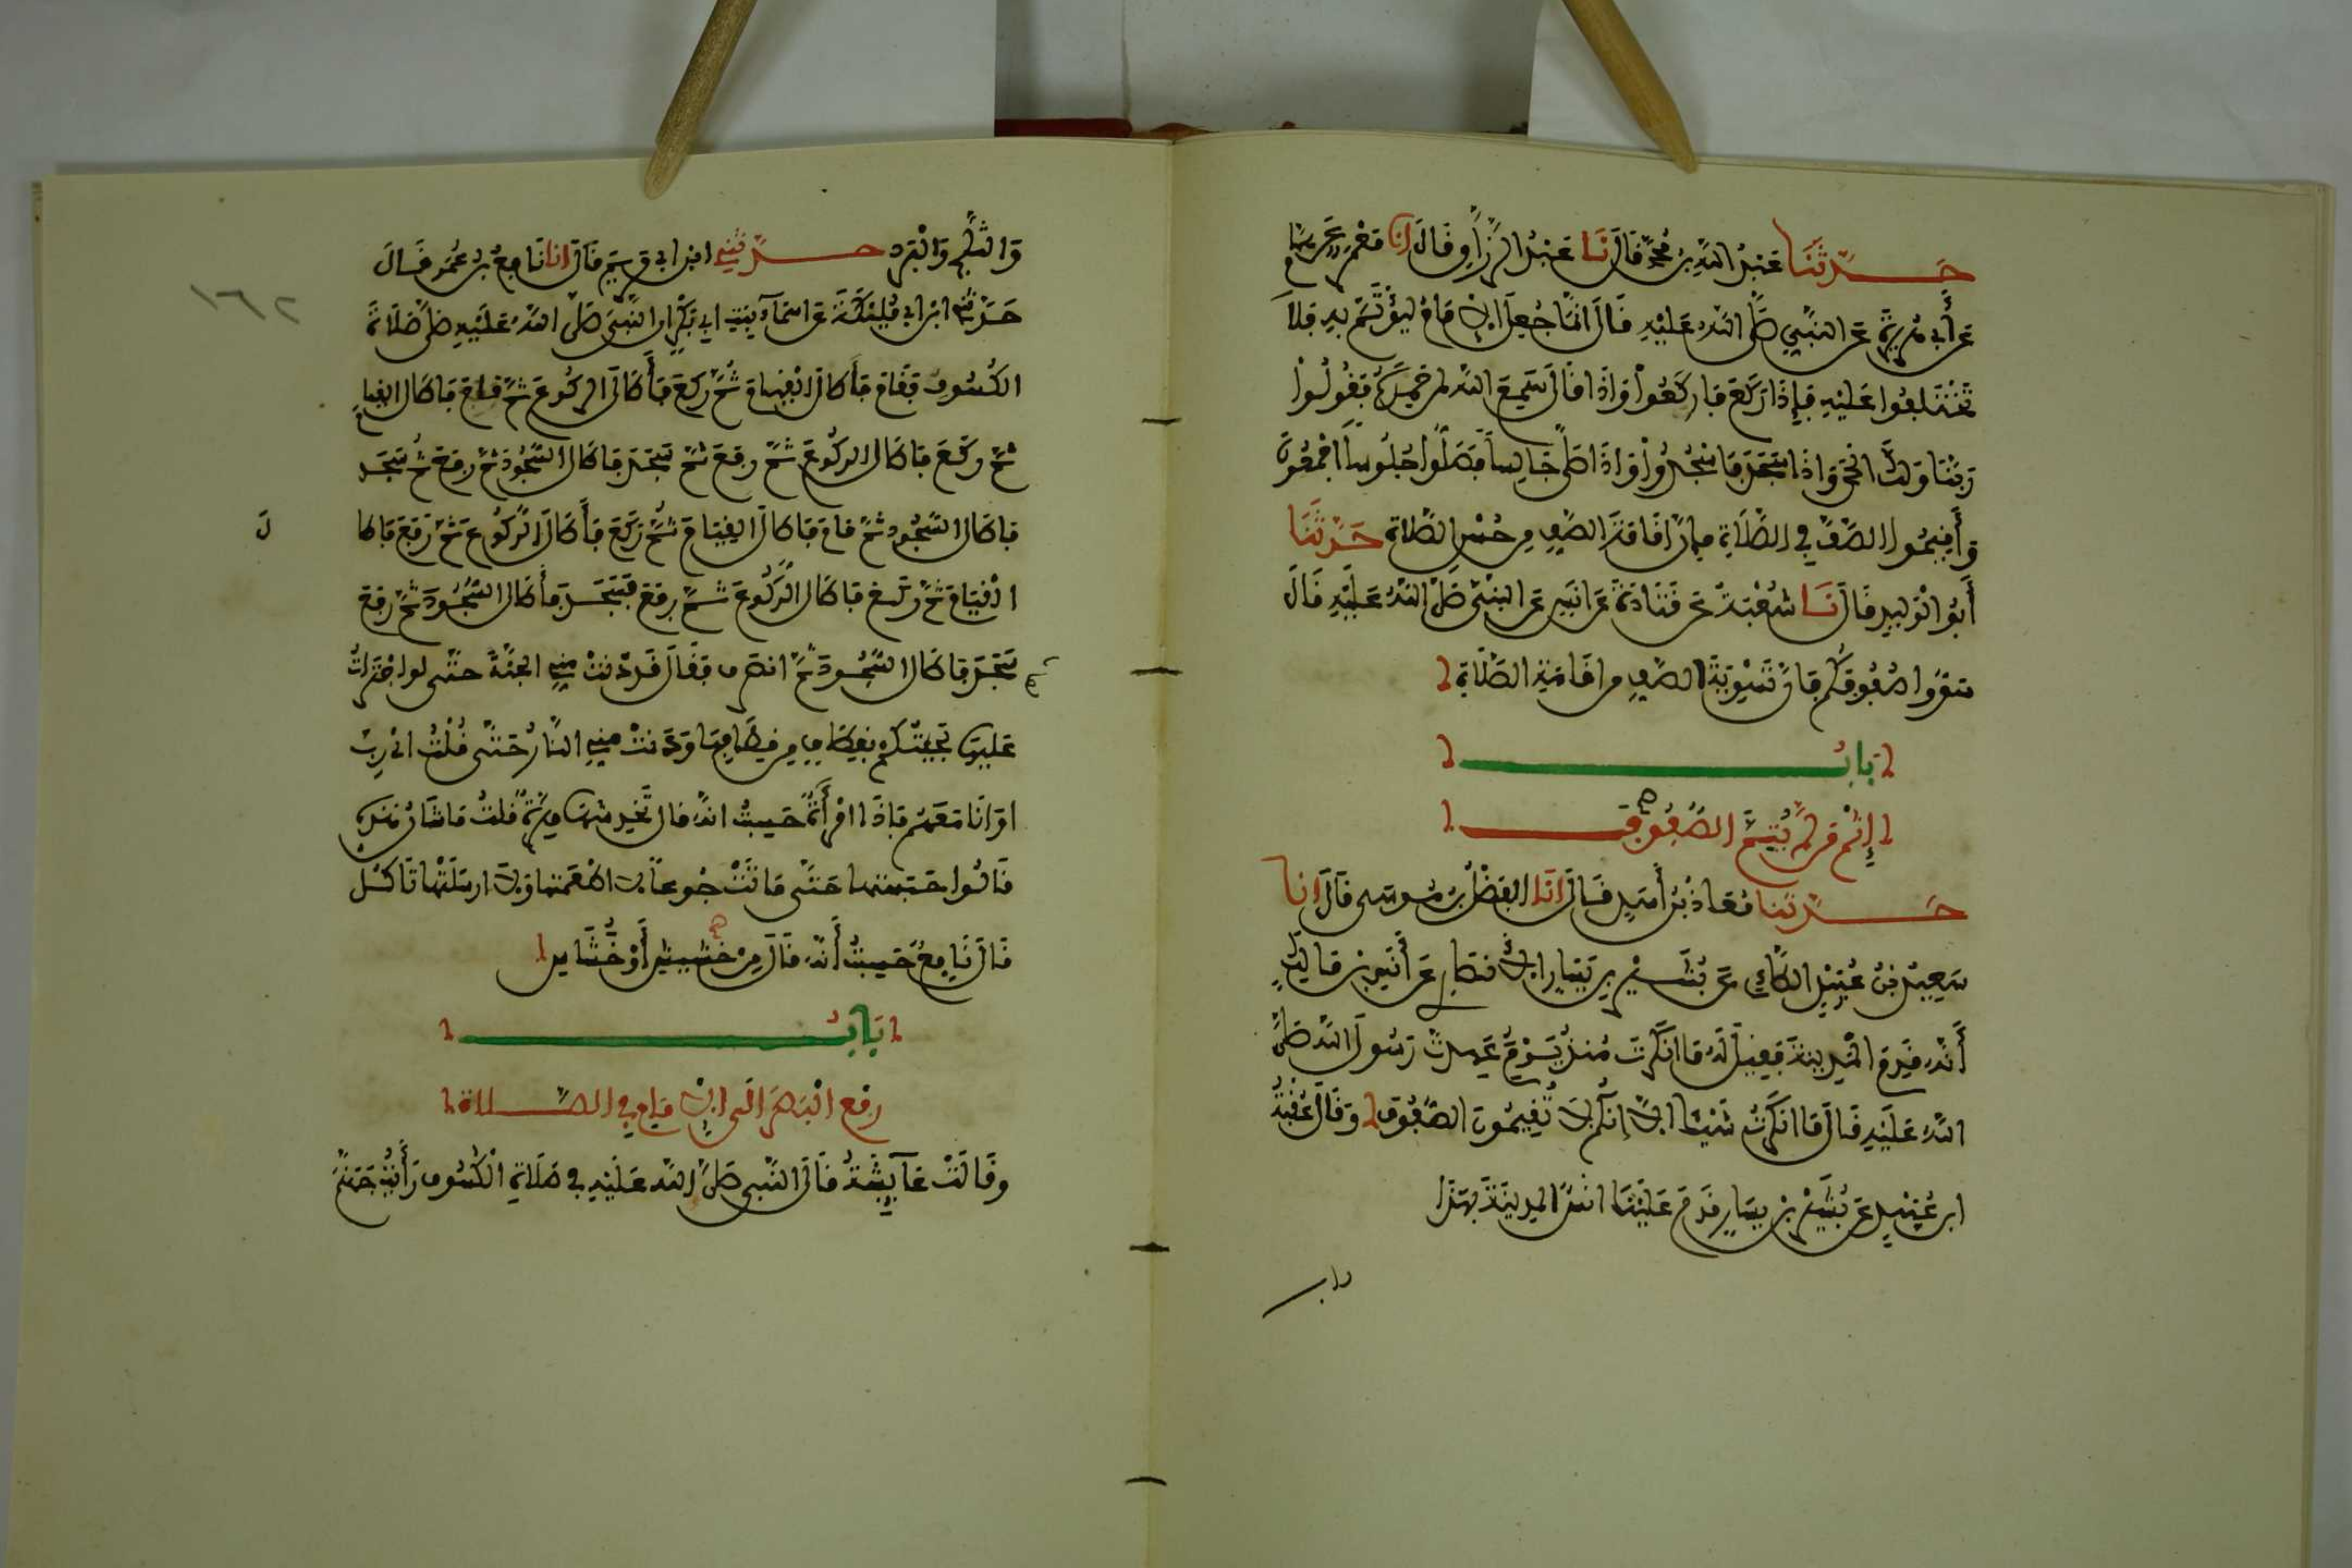 حَدَّثَنَا عَبْدُ اللَّهِ بْنُ مُحَمَّدٍ قَالَ نَا عَبْدُ الرَّزَّاقِ قَالَ انا مَعْمَرٌ عَنْ هَمَّامٍ
عَنْ أَبِي هُرَيْرَةَ عَنِ النَّبِيِّ صَلَّى اللَّهُ عَلَيْهِ قَالَ انَّمَا جُعِلَ الامَامُ لِيُؤْتَمَّ بِهِ فَلَا
تَخْتَلِفُوا عَلَيْهِ فَإِذَا رَكَعَ فَارْكَعُوا وَاذَا قَالَ سَمِعَ اللَّهُ لِمَنْ حَمِدَهُ فَقُولُوا
رَبَّنَا وَلَكَ الْحَمْدُ وَاذَا سَجَدَ فَاسْجُدُوا وَاذَا صَلَّى جَالِسًا فَصَلُّوا جُلُوسًا اجْمَعُونَ
وَأَقِيمُوا الصَّفَّ فِي الصَّلَاةِ فَإِنَّ اقَامَةَ الصَّفِّ مِنْ حُسْنِ الصَّلَاةِ حَدَّثَنَا
أَبُو الْوَلِيدِ قَالَ نَا شُعْبَةُ عَنْ قَتَادَةَ عَنْ انَسٍ عَنِ النَّبِيِّ صَلَّى اللَّهُ عَلَيْهِ قَالَ
سَوُّوا صُفُوفَكُمْ فَإِنَّ تَسْوِيَةَ الصَّفِّ مِنْ اقَامَةِ الصَّلَاةِ
بَابُ
إِثْمِ مَنْ لَمْ يُتِمَّ الصُّفُوفَ
حَدَّثَنَا مُعَاذُ بْنُ أَسَدٍ قَالَ انَا الْفَضْلُ بْنُ مُوسَى قَالَ انا
سَعِيدُ بْنُ عُبَيْدٍ الطَّائِيُّ عَنْ بُشَيْرِ بْنِ يَسَارٍ الانْصَارِيِّ عَنْ أَنَسِ بْنِ مَالِكٍ
أَنَّهُ قَدِمَ الْمَدِينَةَ فَقِيلَ لَهُ مَا انْكَرْتَ مُنْذُ يَوْمِ عَهِدْتَ رَسُولَ اللَّهِ صَلَّى
اللَّهُ عَلَيْهِ قَالَ مَا انْكَرْتُ شَيْئًا الَّا إِنَّكُمْ لَا تُقِيمُونَ الصُّفُوفَ وَقَالَ عُقْبَةُ
ابْنُ عُبَيْدٍ عَنْ بُشَيْرِ بْنِ يَسَارٍ قَدِمَ عَلَيْنَا انَسٌ الْمَدِينَةَ بِهَذَا
باب
وَالثَّلْجِ وَالْبَرَدِ حَدَّثَنِي ابْنُ ابِي مَرْيَمَ قَالَ انا نَافِعُ بْنُ عُمَرَ قَالَ
حَدَّثَنِي ابْنُ ابِي مُلَيْكَةَ عَنْ اسْمَاءَ بِنْتِ ابِي بَكْرٍ ان النَّبِيَّ صَلَّى اللَّهُ عَلَيْهِ صَلَّى صَلَاةَ
الْكُسُوفِ فَقَامَ فَأَطَالَ الْقِيَامَ ثُمَّ رَكَعَ فَأَطَالَ الرُّكُوعَ ثُمَّ قَامَ فَاطَالَ الْقِيَامَ
ثُمَّ رَكَعَ فَاطَالَ الرُّكُوعَ ثُمَّ رَفَعَ ثُمَّ سَجَدَ فَاطَالَ السُّجُودَ ثُمَّ رَفَعَ ثُمَّ سَجَدَ
فَاطَالَ السُّجُودَ ثُمَّ قَامَ فَاطَالَ الْقِيَامَ ثُمَّ رَكَعَ فَأَطَالَ الرُّكُوعَ ثُمَّ رَفَعَ فَاطَا
لَ
الْقِيَامَ ثُمَّ رَكَعَ فَاطَالَ الرُّكُوعَ ثُمَّ رَفَعَ فَسَجَدَ فَأَطَالَ السُّجُودَ ثُمَّ رَفَعَ
سَجَدَ فَاطَالَ السُّجُودَ ثُمَّ انْصَرَفَ فَقَالَ قَدْ دَنَتْ مِنِّي الْجَنَّةُ حَتَّى لَوِ اجْتَرَأْتُ
عَلَيْهَا لَجِئْتُكُمْ بِقِطَافٍ مِنْ قِطَافِهَا وَدَنَتْ مِنِّي النَّارُ حَتَّى قُلْتُ ايْ رَبِّ
اوَانَا مَعَهُمْ فَإِذَا امْرَأَةٌ حَسِبْتُ انَّهُ قَالَ تَخْدِشُهَا هِرَّةٌ قُلْتُ مَا شَأْنُ هَذِهِ
قَالُوا حَبَسَتْهَا حَتَّى مَاتَتْ جُوعًا لَا اطْعَمَتْهَا وَلَا ارْسَلَتْهَا تَاكُلُ
قَالَ نَافِعٌ حَسِبْتُ أَنَّهُ قَالَ مِنْ خَشِيشِ أَوْ خُشَاشِ
بَابُ
رَفْعِ الْبَصَرِ الَى الامَامِ فِي الصَّلَاةِ
وَقَالَتْ عَائِشَةُ قَالَ النَّبِيُّ صَلَّى اللَّهُ عَلَيْهِ فِي صَلَاةِ الْكُسُوفِ رَأَيْتُ جَهَنَّمَ